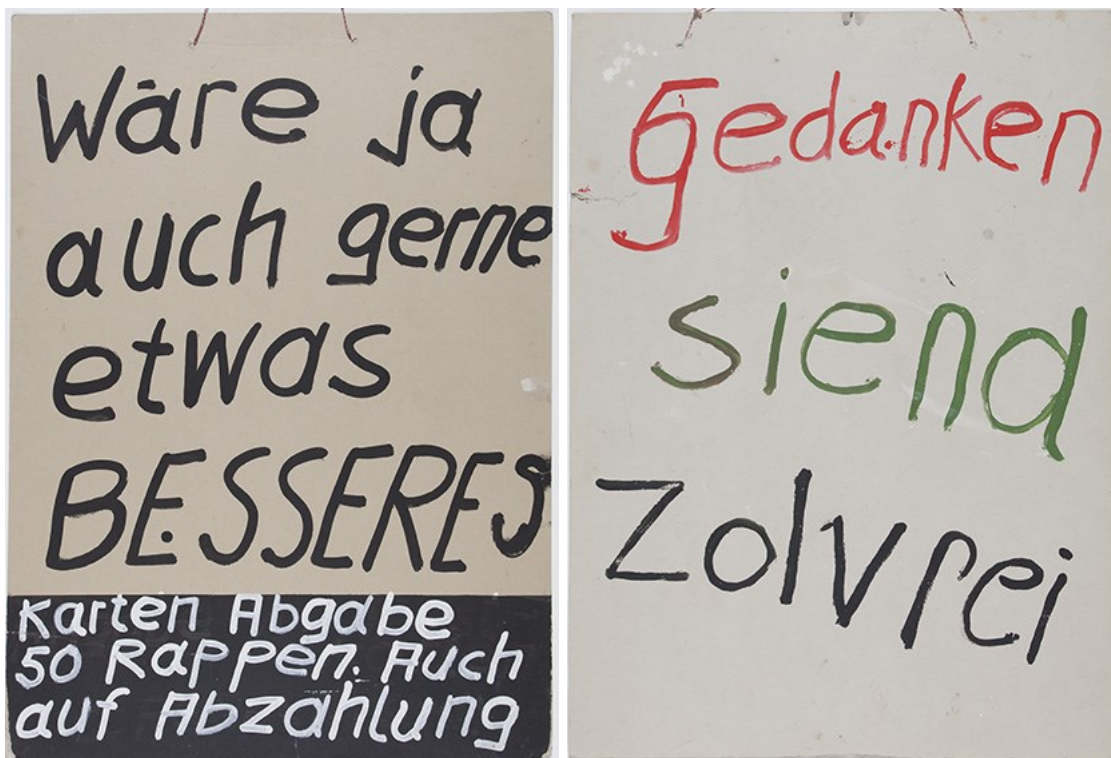 Wäre ja
auch gerne
etwas
BESSERES
Karten Abgabe
50 Rappen. Auch
auf Abzahlung
Gedanken
siend
Zolvrei